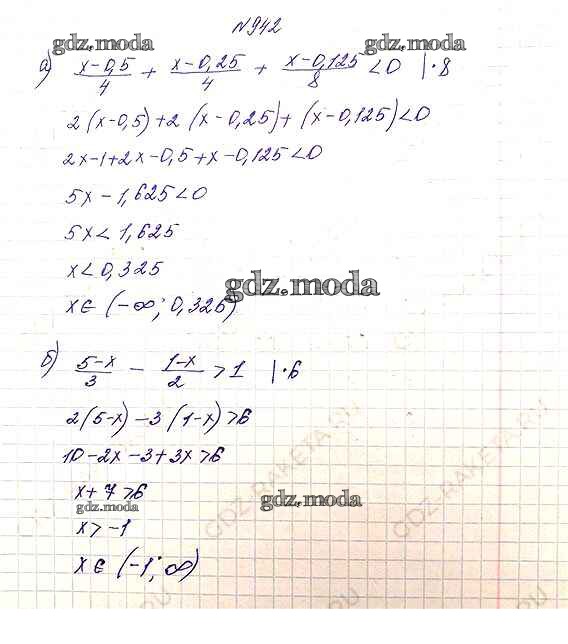 N942
gdz.moda
а) x-0,5/4 + x-0,25/4 + x-0,125/8 <0 |·8
2(x-0,5)+2(x-0,25)+(x-0,125)<0
2x-1+2x-0,5+x-0,125<0
5x-1,625<0
5x<1,625
x<0,325
gdz.moda
x∈(-∞; 0,325)
б) 5-x/3 - 1-x/2 >1 |·6
2(5-x)-3(1-x)>6
10-2x-3+3x>6
GDZ-RAKETA.RU
GDZ-RAKETA.RU
x+7>6
gdz.moda
gdz.moda
x>-1
x∈(-1; ∞)